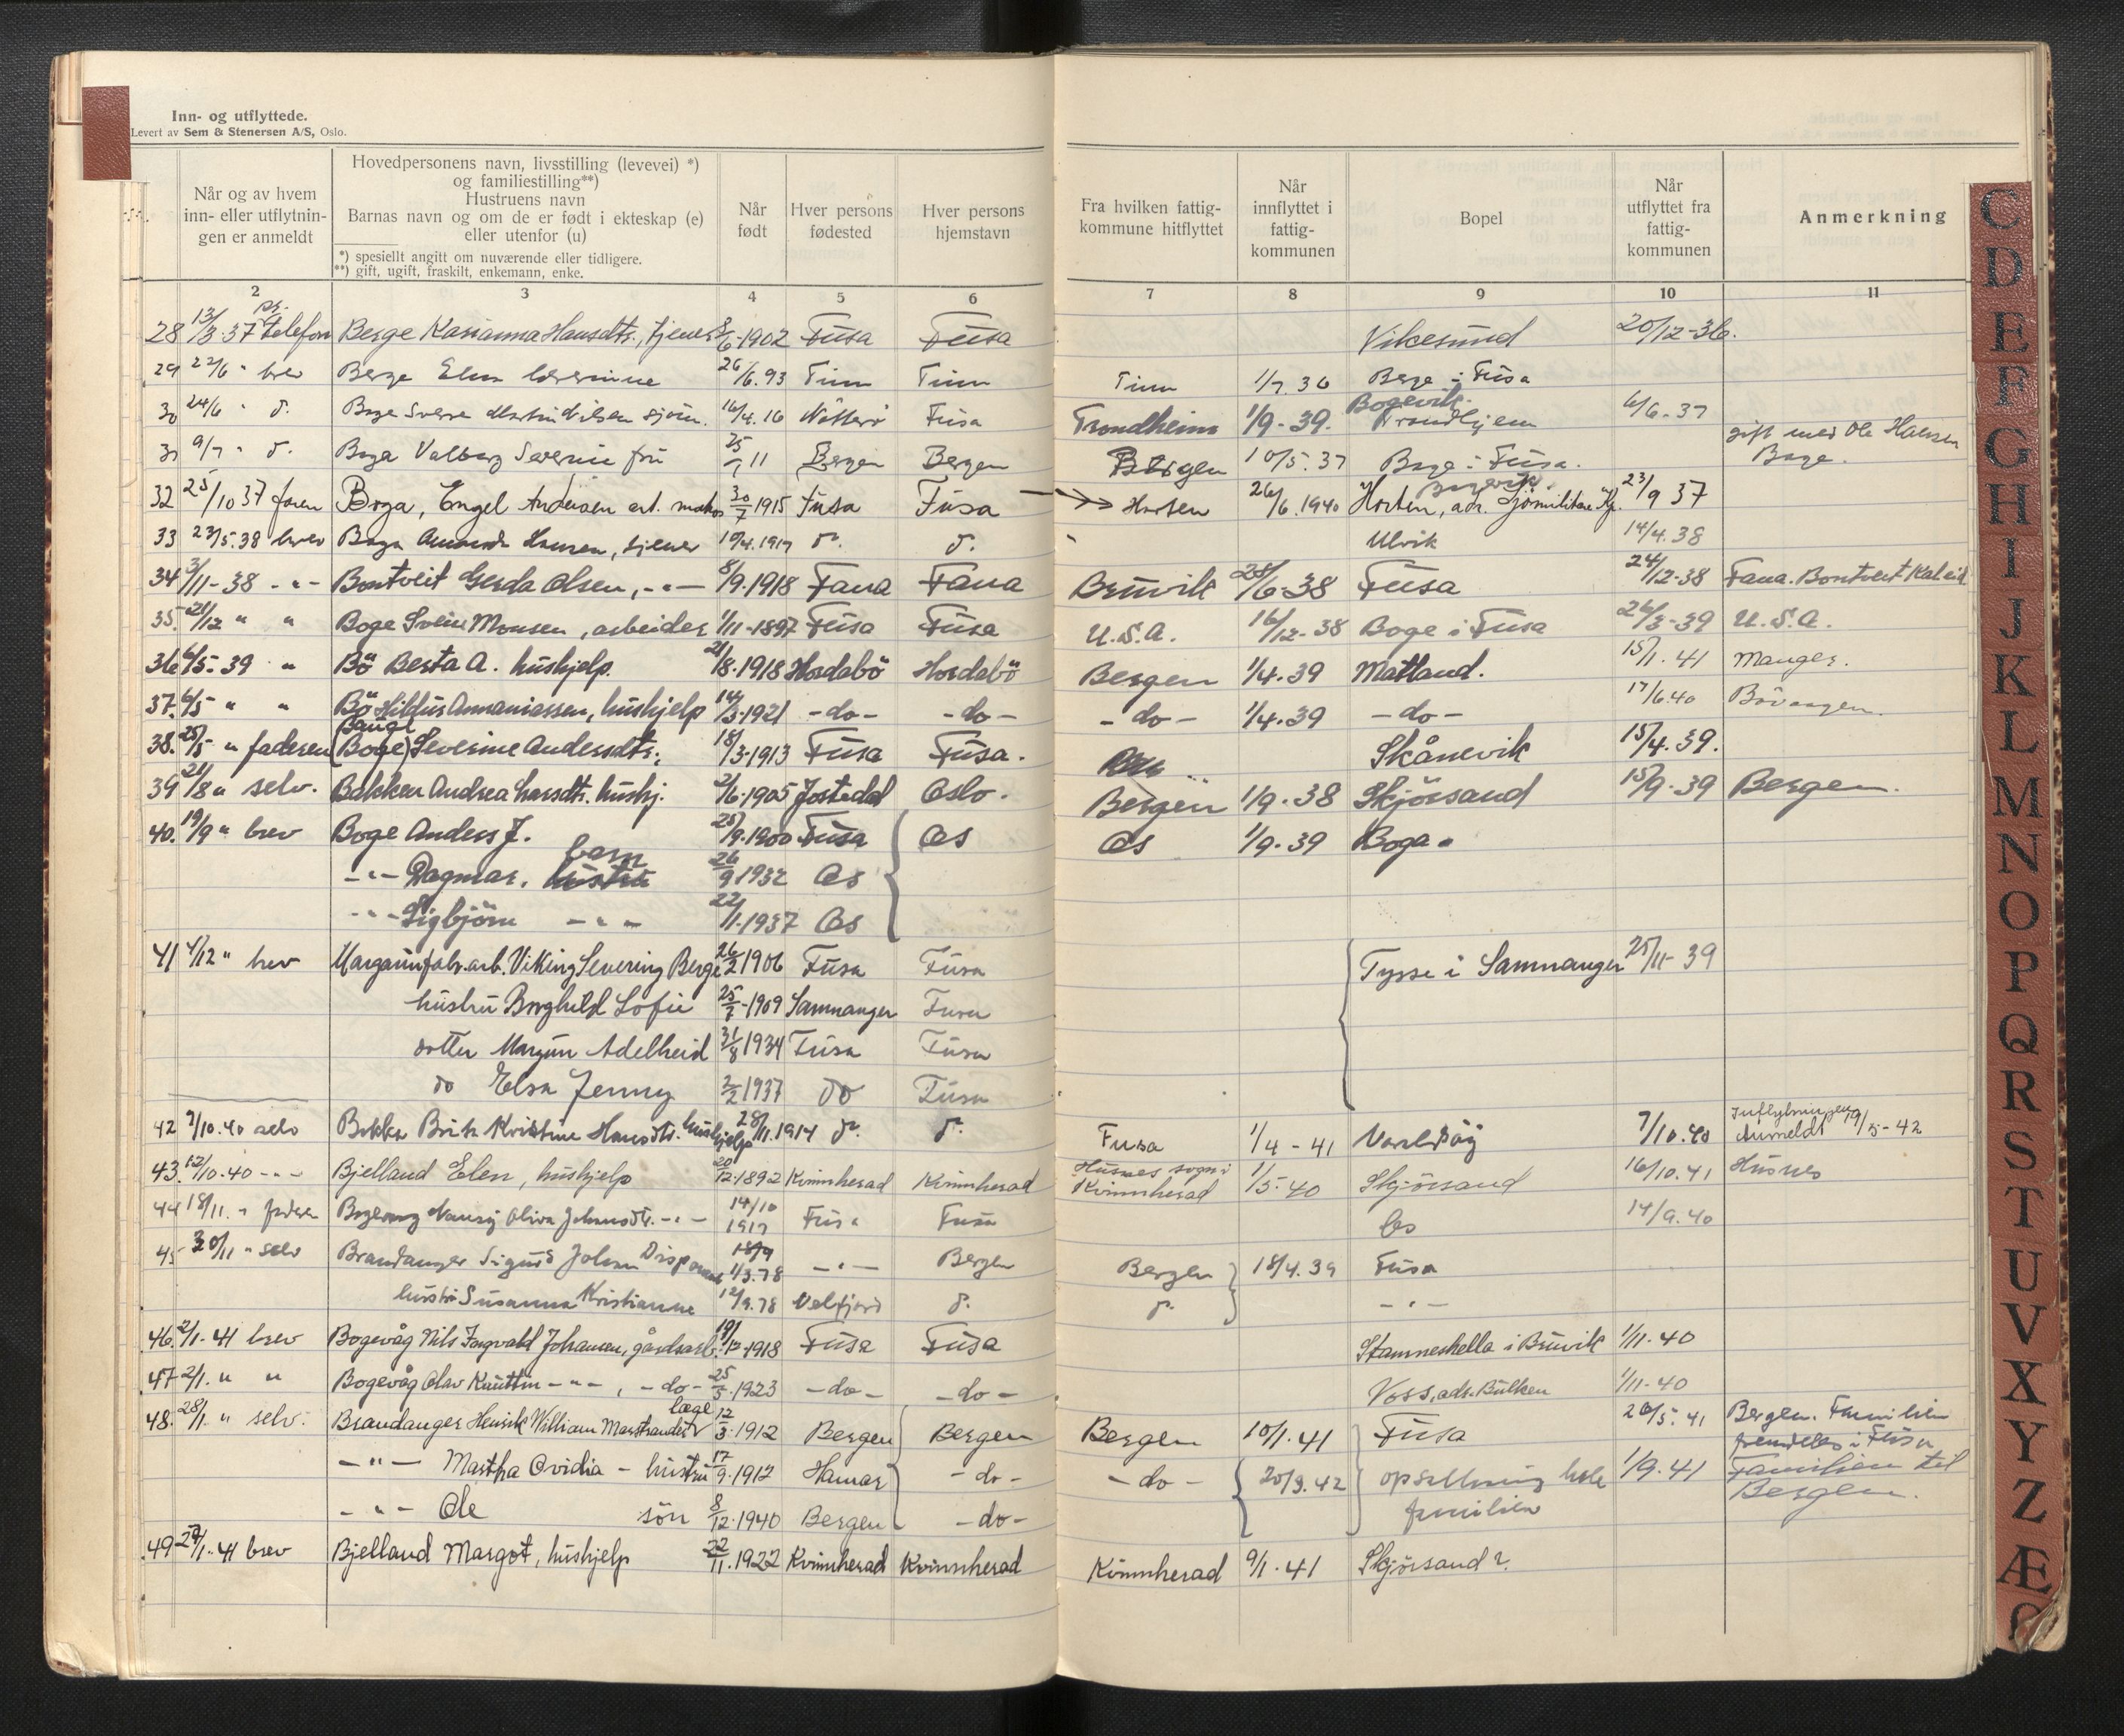 Inn- og utflyttede.
Levert av Sem & Stenersen A/S, Oslo.
Når og av hvem inn- eller utflytnin-gen er anmeldt
Hovedpersonens navn, livsstilling (levevei) *) og familiestilling**)
Hustruens navn
Barnas navn og om de er født i ekteskap (e) eller utenfor (u)
*) spesiellt angitt om nuværende eller tidligere.
**) gift, ugift, fraskilt, enkemann, enke.
Når født
Hver persons fødested
Hver persons hjemstavn
Fra hvilken fattig-kommune hitflyttet
Når innflyttet i fattig-kommunen
Bopel
Når utflyttet fra fattig-kommunen
Anmerkning
2 3 4 5 6 7 8 9 10 11
28 13/3-37 pr. telefon Berge Karianna Hansdtr., tjener 8/6-1902 Fusa Fusa Vikesund 20/12-36.
29 22/6 " brev Berge Elen lærerinne 26/6.93 Tinn Tinn Tinn 1/7 36 Berge i Fusa
30 24/6 " d. Boge Sverre Martin Nilsen sjöm. 16/4.16 Nötterö Fusa Trondheim 1/9-39. Bogevik. Trondhjem 6/6-37
31 9/7 " d. Boge Valborg Severine fru 25/1 11 Bergen Bergen Bergen 10/5.37 Boge i Fusa. gift med Ole Hansen Boge.
32 25/10 37 faren Boga, Engel Andersen 30/7 1915 Fusa Fusa Horten 26/6.1940 Bogevik. Horten, adr. Sjömilitære 23/9 37
33 23/5.38 brev Boga Hansen, tjener 10/4.1917 d. d. Ulvik 14/4.38
34 3/11-38 -"- Bontveit Gerda Olsen, -"- 8/9.1918 Fana Fana Bruvik 28/6-38 Fusa 24/12-38 Fana. Bontveit Kaleid
35. 21/12 " " Boge Sveine Monsen, arbeider 1/11-1897 Fusa Fusa U.S.A. 16/12-38 Boge i Fusa 26/3-39 U.S.A.
36 6/5-39 " Bö Berta A. hushjelp. 21/8.1918 Hordabö Hordabö Bergen 1/4.39 Matland. 15/1.41 Manger.
37. 6/5 " " Bö Hildus Annaniassen, hushjelp 14/3.1921 -do- -do- -do- 1/4.39 -do- 17/6.40 Bövaagen.
38. 25/5 " faderen (Boge) Severine Andersdtr. 18/3.1913 Fusa Fusa. Skånevik 15/4.39.
39 21/8 " selv. Bakken Andrea Larsdtr. hushj. 2/6.1905 Jostedal Oslo. Bergen 1/9.38 Skjörsand 15/9.39 Bergen.
40. 19/9 " brev Boge Anders J. 25/9.1900 Fusa Os Os 1/9.39 Boga.
-"- Dagmar. barn 26/9 1932 Os
-"- Sigbjörn -"- 22/1.1937 Os
41 4/12 " brev Margarinfabr.arb. Viking Severing Berge 26/2 1906 Fusa Fusa Tysse i Samnanger 25/11-39
hustru Borghild Sofie 25/7-1909 Samnanger Fusa
dotter Margun Adelheid 31/8 1934 Fusa Fusa
do Elsa Jenny 2/2 1937 do Fusa
42 7/10.40 selv Brita Kristine Hansdtr. hushjelp 28/11.1914 d. d. Fusa 1/4-41 Varldsöy 7/10.40 Influtningen Anmeldt 19/5-42
43. 12/10.40 -"- Bjelland Elen, hushjelp 20/12.1892 Kvinnherad Kvinnherad Husnes sogn i Kvinnherad 1/5-40 Skjörsand 16/10.41 Husnes
44 18/11. " faderen Bogevaag Nancy Oliva Johansdtr. -"- 14/10 1917 Fusa Fusa Os 14/9.40
45 30/11 " selv Brandanger Sigurd Johan Disponent 1/3.78 -"- Bergen Bergen 18/4.39 Fusa
hustru Susanna Kristianne 12/9.78 Velfjord d. d. -"-
46. 2/1-41 brev Bogevåg Nils Ingvald Johansen, gårdsarb. 19/12-1918 Fusa Fusa Stamneshella i Bruvik 1/11-40
47 2/1. " " Bogevåg Olav Knutten -"-, -do- 25/5.1923 -do- -do- Voss, adr. Bulken 1/11-40
48. 28/1. " selv. Brandanger Henrik William Marstrander læge 12/3.1912 Bergen Bergen Bergen 10/1.41 Fusa 20/5.41 Bergen. Familien fremdeles i Fusa
-"- Martha Ovidia - hustru 17/9.1912 Hamar -do- -do- 20/9.42 hele familien 1/9.41 Familien til Bergen.
-"- Ole sön 8/12.1940 Bergen -do-
49 27/1.41 brev Bjelland Margot, hushjelp 22/11.1922 Kvinnherad Kvinnherad Kvinnherad 9/1.41 Skjörsand?
C
D
E
F
G
H
I
J
K
L
M
N
O
P
Q
R
S
T
U
V
X
Y
Z
Æ